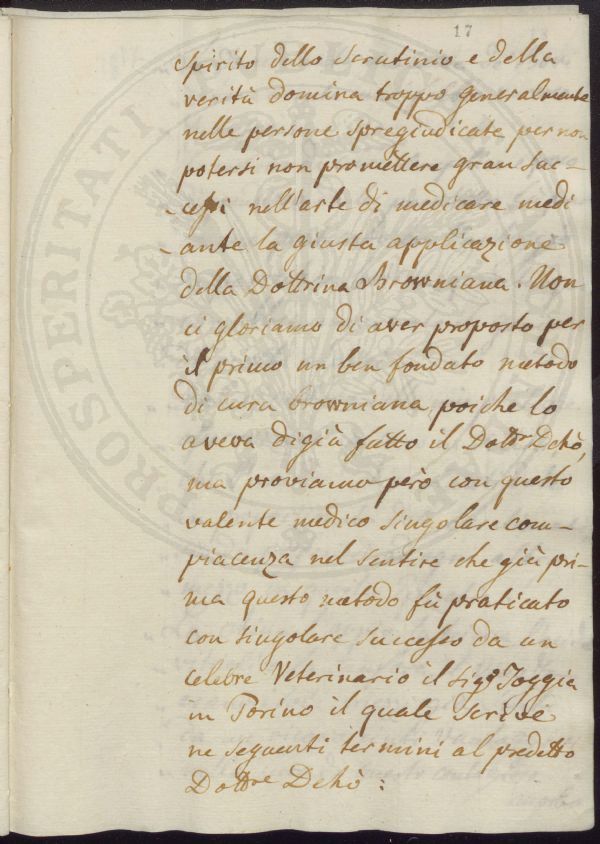 17
spirito dello scrutinio e della
verità domina troppo generalmente
nelle persone spregiudicate per non
potersi non promettere gran suc-
-cessi nell'arte di medicare medi
-ante la giusta applicazione
della Dottrina Browniana. Non
ci gloriamo di aver proposto per
il primo un ben fondato metodo
di cura browniana, poiche lo
aveva digià fatto il Dottr Dehò,
ma proviamo però con questo
valente medico singolare com-
piacenza nel sentire che già pri-
ma questo metodo fù praticato
con singolare successo da un
celebre Veterinario il Sigr Toggia
in Torino il quale scrive
ne seguenti termini al predetto
Dottre Dehò:
PROSPERITATI